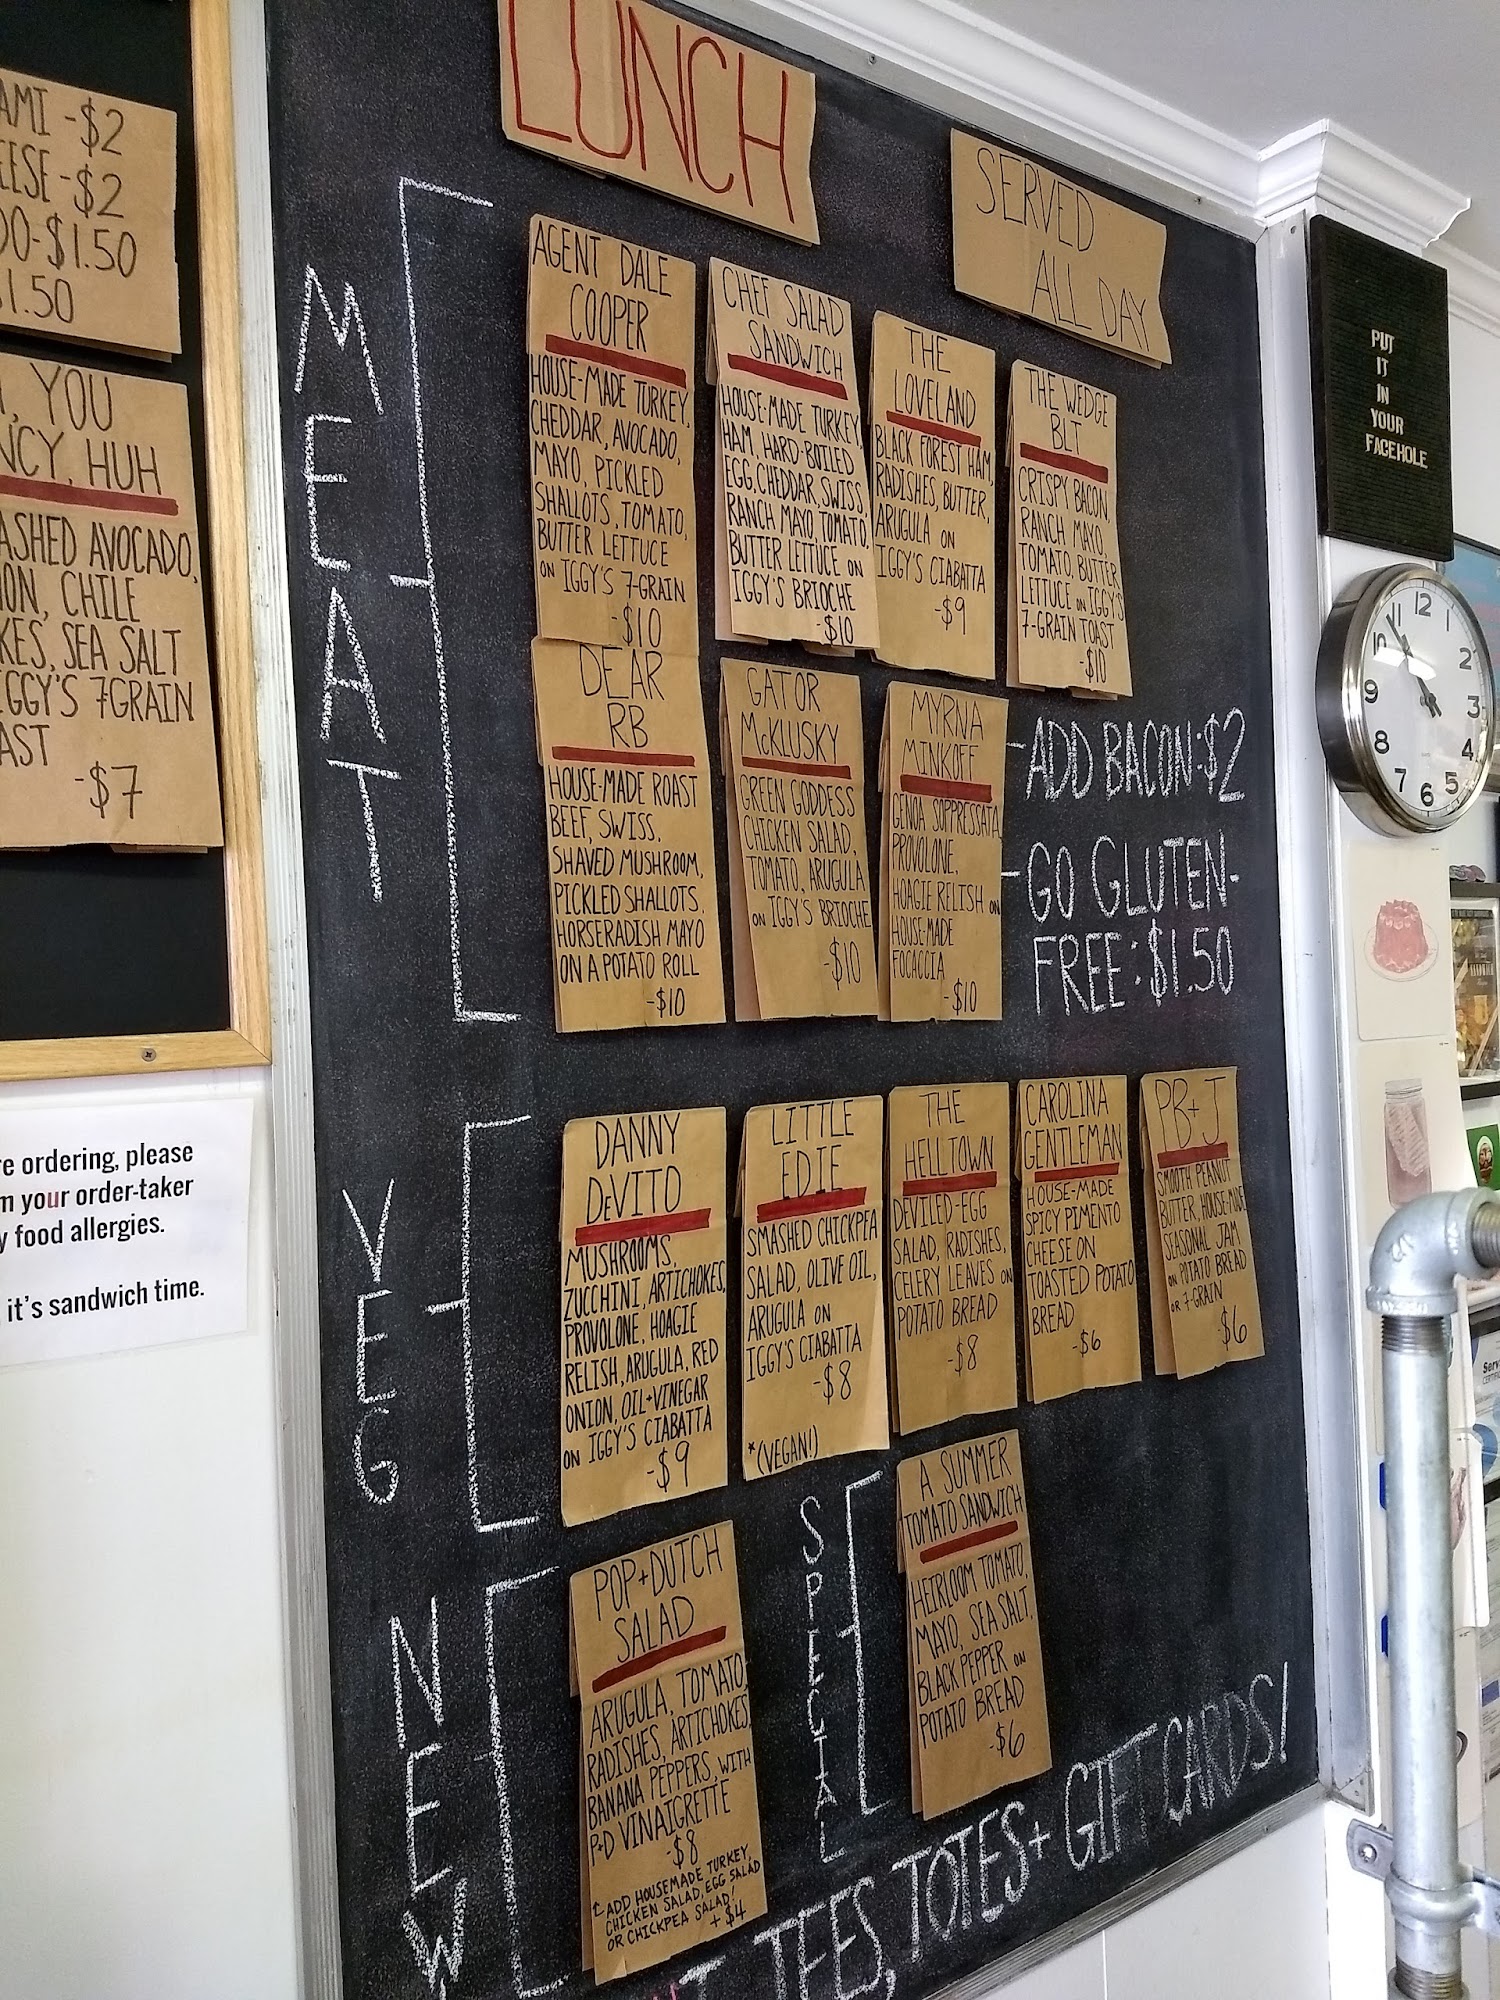 -$2
-$2
-$1.50
$1.50
YOU
HUH
AVOCADO,
CHILE
SEA SALT
IGGY'S 7GRAIN
-$7
ordering, please
your order-taker
food allergies.
it's sandwich time.
LUNCH
SERVED
ALL DAY
MEAT
AGENT DALE
COOPER
HOUSE-MADE TURKEY,
CHEDDAR, AVOCADO,
MAYO, PICKLED
SHALLOTS, TOMATO,
BUTTER LETTUCE
ON IGGY'S 7-GRAIN
-$10
CHEF SALAD
SANDWICH
HOUSE-MADE TURKEY,
HAM, HARD-BOILED
EGG, CHEDDAR, SWISS,
RANCH MAYO, TOMATO,
BUTTER LETTUCE ON
IGGY'S BRIOCHE
-$10
THE
LOVELAND
BLACK FOREST HAM,
RADISHES, BUTTER,
ARUGULA ON
IGGY'S CIABATTA
-$9
THE WEDGE
BLT
CRISPY BACON,
RANCH MAYO,
TOMATO, BUTTER
LETTUCE ON IGGY'S
7-GRAIN TOAST
-$10
DEAR
RB
HOUSE-MADE ROAST
BEEF, SWISS,
SHAVED MUSHROOM,
PICKLED SHALLOTS,
HORSERADISH MAYO
ON A POTATO ROLL
-$10
GATOR
McKLUSKY
GREEN GODDESS
CHICKEN SALAD,
TOMATO, ARUGULA
ON IGGY'S BRIOCHE
-$10
MYRNA
MINKOFF
GENOA SOPPRESSATA,
PROVOLONE,
HOAGIE RELISH ON
HOUSE-MADE
FOCACCIA
-$10
-ADD BACON:$2
-GO GLUTEN-
FREE:$1.50
VEG
DANNY
DeVITO
MUSHROOMS,
ZUCCHINI, ARTICHOKES,
PROVOLONE, HOAGIE
RELISH, ARUGULA, RED
ONION, OIL+VINEGAR
ON IGGY'S CIABATTA
-$9
LITTLE
EDIE
SMASHED CHICKPEA
SALAD, OLIVE OIL,
ARUGULA ON
IGGY'S CIABATTA
-$8
*(VEGAN!)
THE
HELLTOWN
DEVILED-EGG
SALAD, RADISHES,
CELERY LEAVES ON
POTATO BREAD
-$8
CAROLINA
GENTLEMAN
HOUSE-MADE
SPICY PIMENTO
CHEESE ON
TOASTED POTATO
BREAD
-$6
PB+J
SMOOTH PEANUT
BUTTER, HOUSE-MADE
SEASONAL JAM
ON POTATO BREAD
OR 7-GRAIN
-$6
NEW
POP+DUTCH
SALAD
ARUGULA, TOMATO,
RADISHES, ARTICHOKES,
BANANA PEPPERS, WITH
P+D VINAIGRETTE
-$8
ADD HOUSEMADE TURKEY,
CHICKEN SALAD, EGG SALAD
OR CHICKPEA SALAD!
+$4
SPECIAL
A SUMMER
TOMATO SANDWICH
HEIRLOOM TOMATO,
MAYO, SEA SALT,
BLACK PEPPER ON
POTATO BREAD
-$6
TEES, TOTES + GIFT CARDS!
PUT
IT
IN
YOUR
FACEHOLE
12
2
3
4
5
6
7
8
9
10